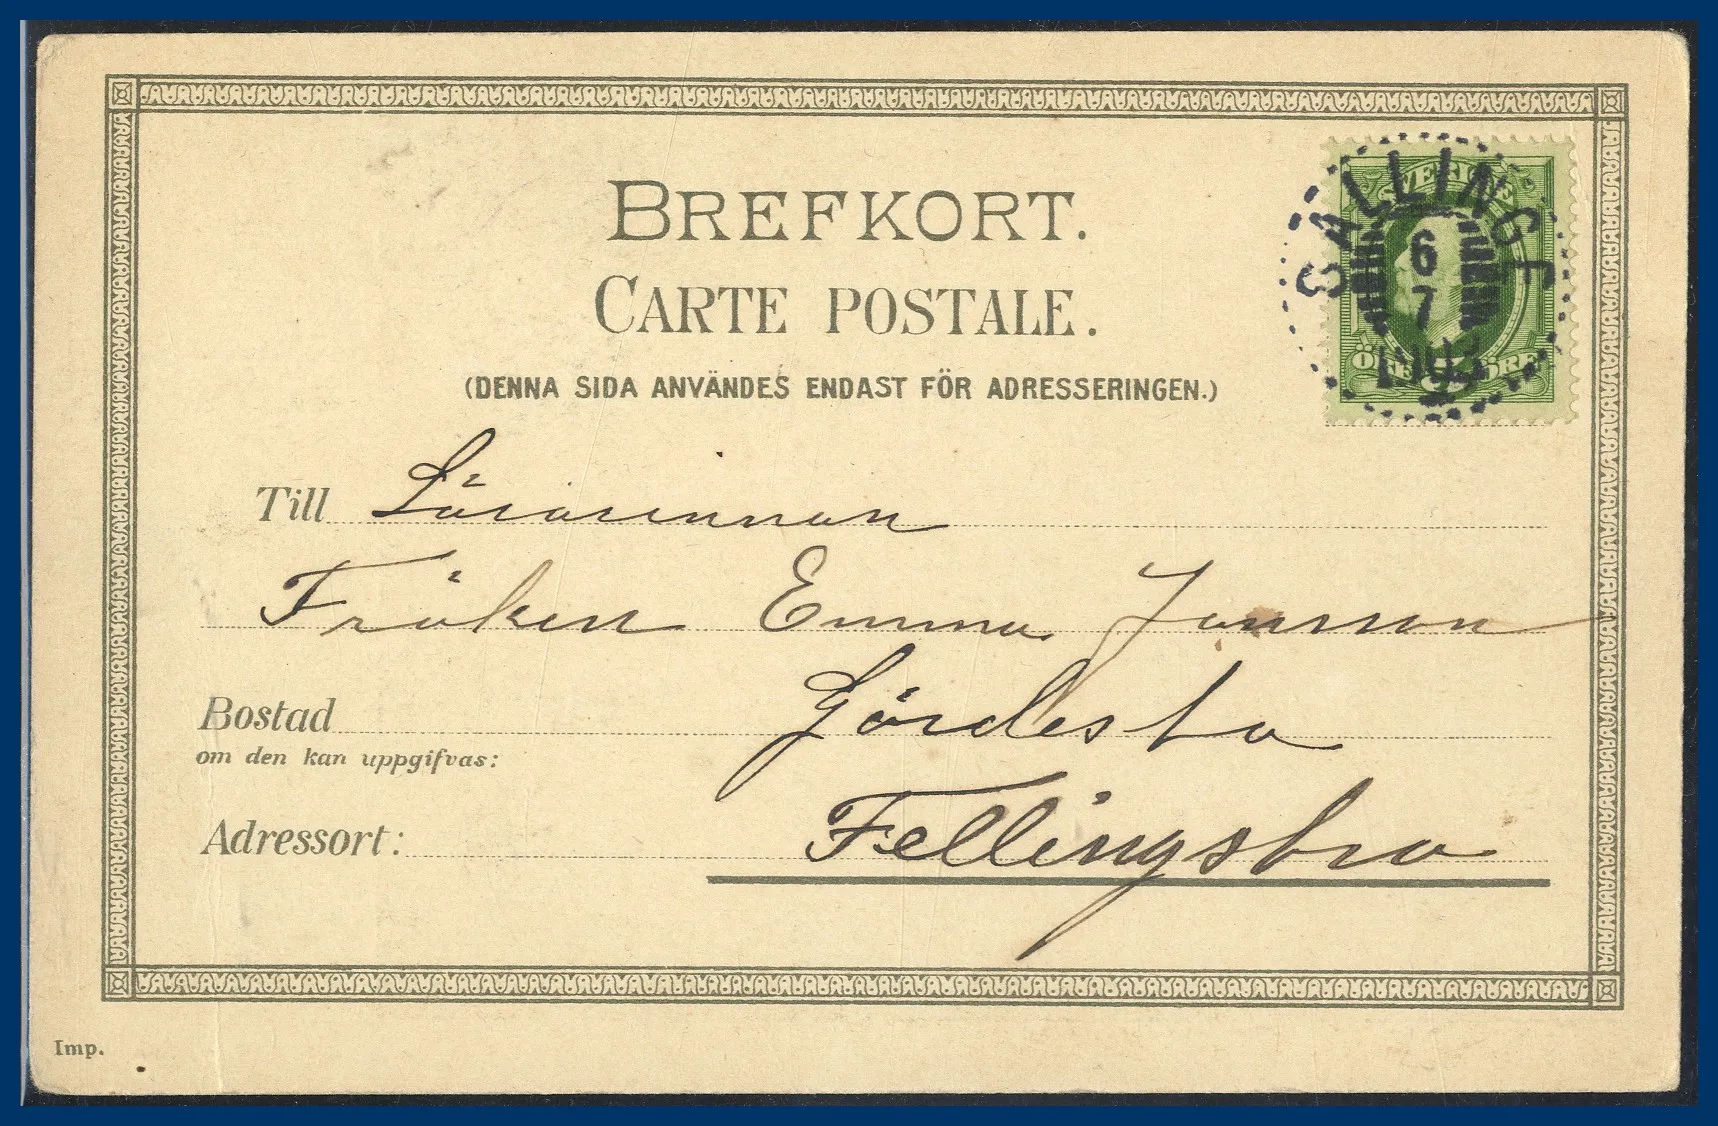 BREFKORT.
CARTE POSTALE.
(DENNA SIDA ANVÄNDES ENDAST FÖR ADRESSERINGEN.)
SVERIGE
SALLINGE
6
7
ÖRE ÖRE
Till Lärarinnan
Fröken Emma Jansson
Bostad Gärdesta
om den kan uppgifvas:
Adressort: Fellingsbro
Imp.